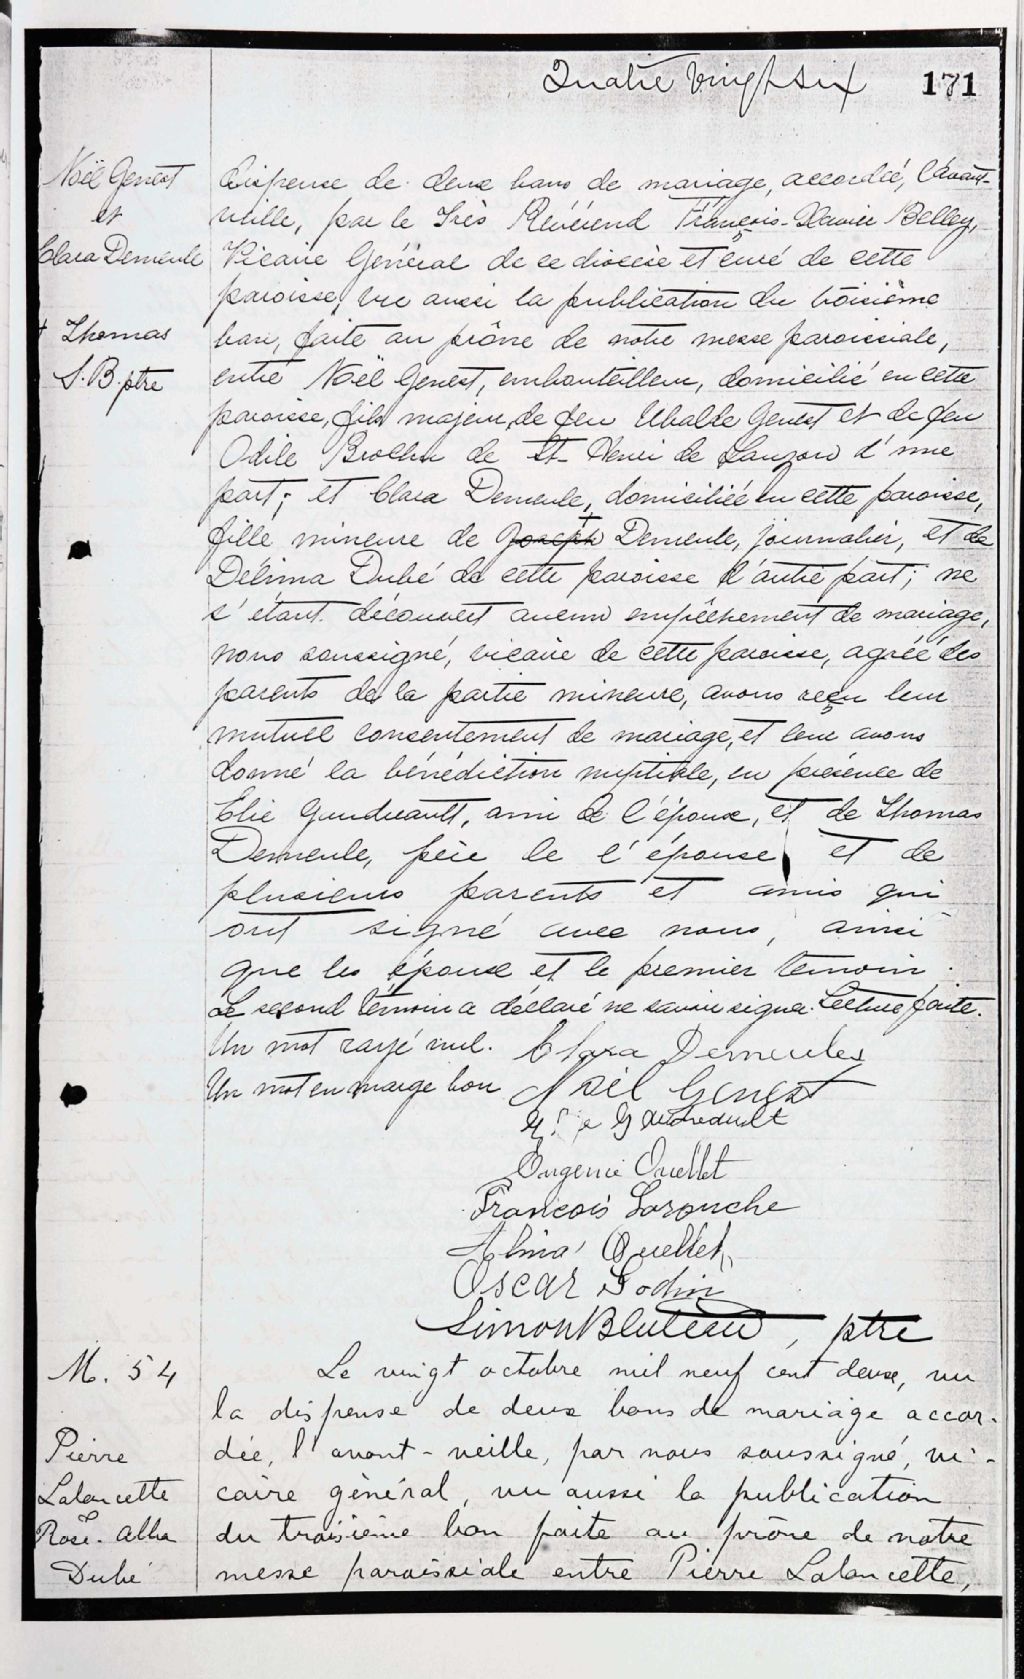 Quatre vingt six 171
Noël Genest
et
Clara Demeule
+ Thomas
S. B. ptre
dispense de deux bans de mariage, accordée, l'avant-
veille, par le Très Révérend François-Xavier Belley,
Vicaire Général de ce diocèse et curé de cette
paroisse, vu aussi la publication du troisième
ban, faite au prône de notre messe paroissiale,
entre Noël Genest, embouteilleur, domicilié en cette
paroisse, fils majeur de feu Ubalde Genest et de feu
Odile Brochu de St-Henri de Lauzon d'une
part; et Clara Demeule, domiciliée en cette paroisse,
fille mineure de Joseph + Demeule, journalier, et de
Délima Dubé de cette paroisse d'autre part; ne
s'étant découvert aucun empêchement de mariage,
nous soussigné, vicaire de cette paroisse, agréé des
parents de la partie mineure, avons reçu leur
mutuel consentement de mariage, et leur avons
donné la bénédiction nuptiale, en présence de
Elie Gaudreault, ami de l'époux, et de Thomas
Demeule, père de l'épouse et de
plusieurs parents et amis qui
ont signé avec nous, ainsi
que les époux et le premier temoin.
Le second témoin a déclaré ne savoir signer. Lecture faite.
Un mot rayé nul. Clara Demeules
Un mot en marge bon Noël Genest
Gaudreault
Eugenie Ouellet
Francois Larouche
Alma Ouellet
Oscar Godin
Simon Bluteau, ptre
M. 54
Pierre
Lalancette
&
Rose-Alba
Dubé
Le vingt octobre mil neuf cent deux, vu
la dispense de deux bans de mariage accor-
dée, l'avant-veille, par nous soussigné, vi-
caire général, vu aussi la publication
du troisième ban faite au prône de notre
messe paroissiale entre Pierre Lalancette,